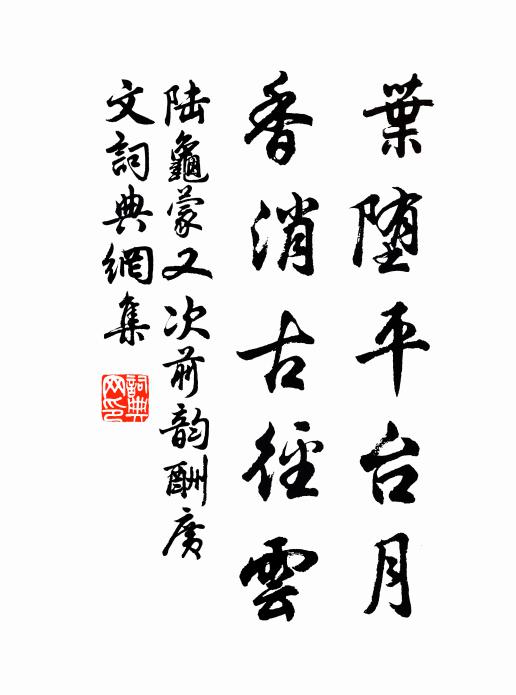 葉堕平台月
香消古徑雲
陆龜蒙又次前韵酬廣
文詞典網集
詞典
网印